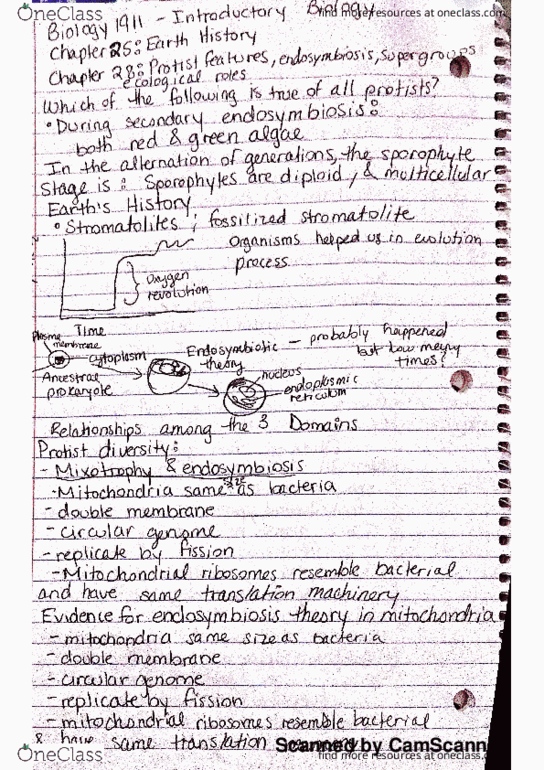 OneClass
find more resources at oneclass.com
Biology 1911 - Introductory Biology
Chapter 25: Earth History
Chapter 28: Protist features, endosymbiosis, supergroups
ecological roles
Which of the following is true of all protists?
• During secondary endosymbiosis:
both red & green algae
In the alternation of generations, the sporophyte
stage is: Sporophytes are diploid, & multicellular
Earth's History
• Stromatolites; fossilized stromatolite
Organisms helped us in evolution
process
Oxygen
revolution
Time
Plasma
membrane
cytoplasm
Ancestral
prokaryote
Endosymbiotic - probably happened
theory
but how many
times?
nucleus
endoplasmic
reticulum
Relationships among the 3 Domains
Protist diversity:
- Mixotrophy & endosymbiosis
- Mitochondria same size as bacteria
- double membrane
- circular genome
- replicate by fission
- Mitochondrial ribosomes resemble bacterial
and have same translation machinery
Evidence for endosymbiosis theory in mitochondria
- mitochondria same size as bacteria
- double membrane
- circular genome
- replicate by fission
- mitochondrial ribosomes resemble bacterial
& have same translation
Scanned by CamScann
OneClass
find more resources at oneclass.com